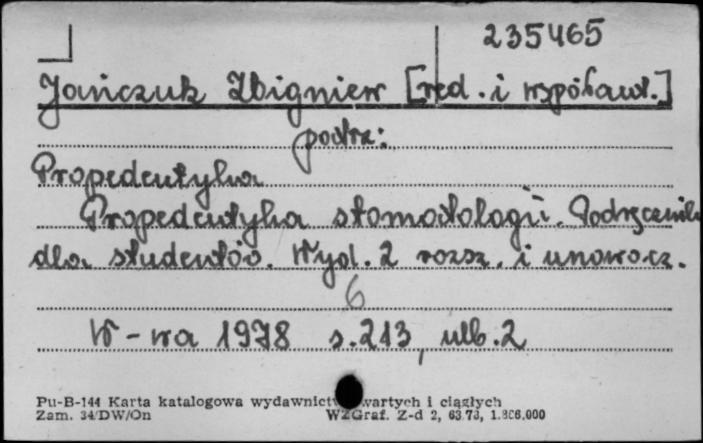 235465
Jańczuk Zbigniew [red. i współaut.]
patrz:
Propedeutyka
Propedeutyka stomatologii. Podręcznik
dla studentów. Wyd. 2 rozsz. i unowocz.
6
W-wa 1978 s. 213, nlb. 2
Pu-B-144 Karta katalogowa wydawnictw zwartych i ciągłych
Zam. 34/DW/On WZGraf. Z-d 2, 63.73, 1.806.000